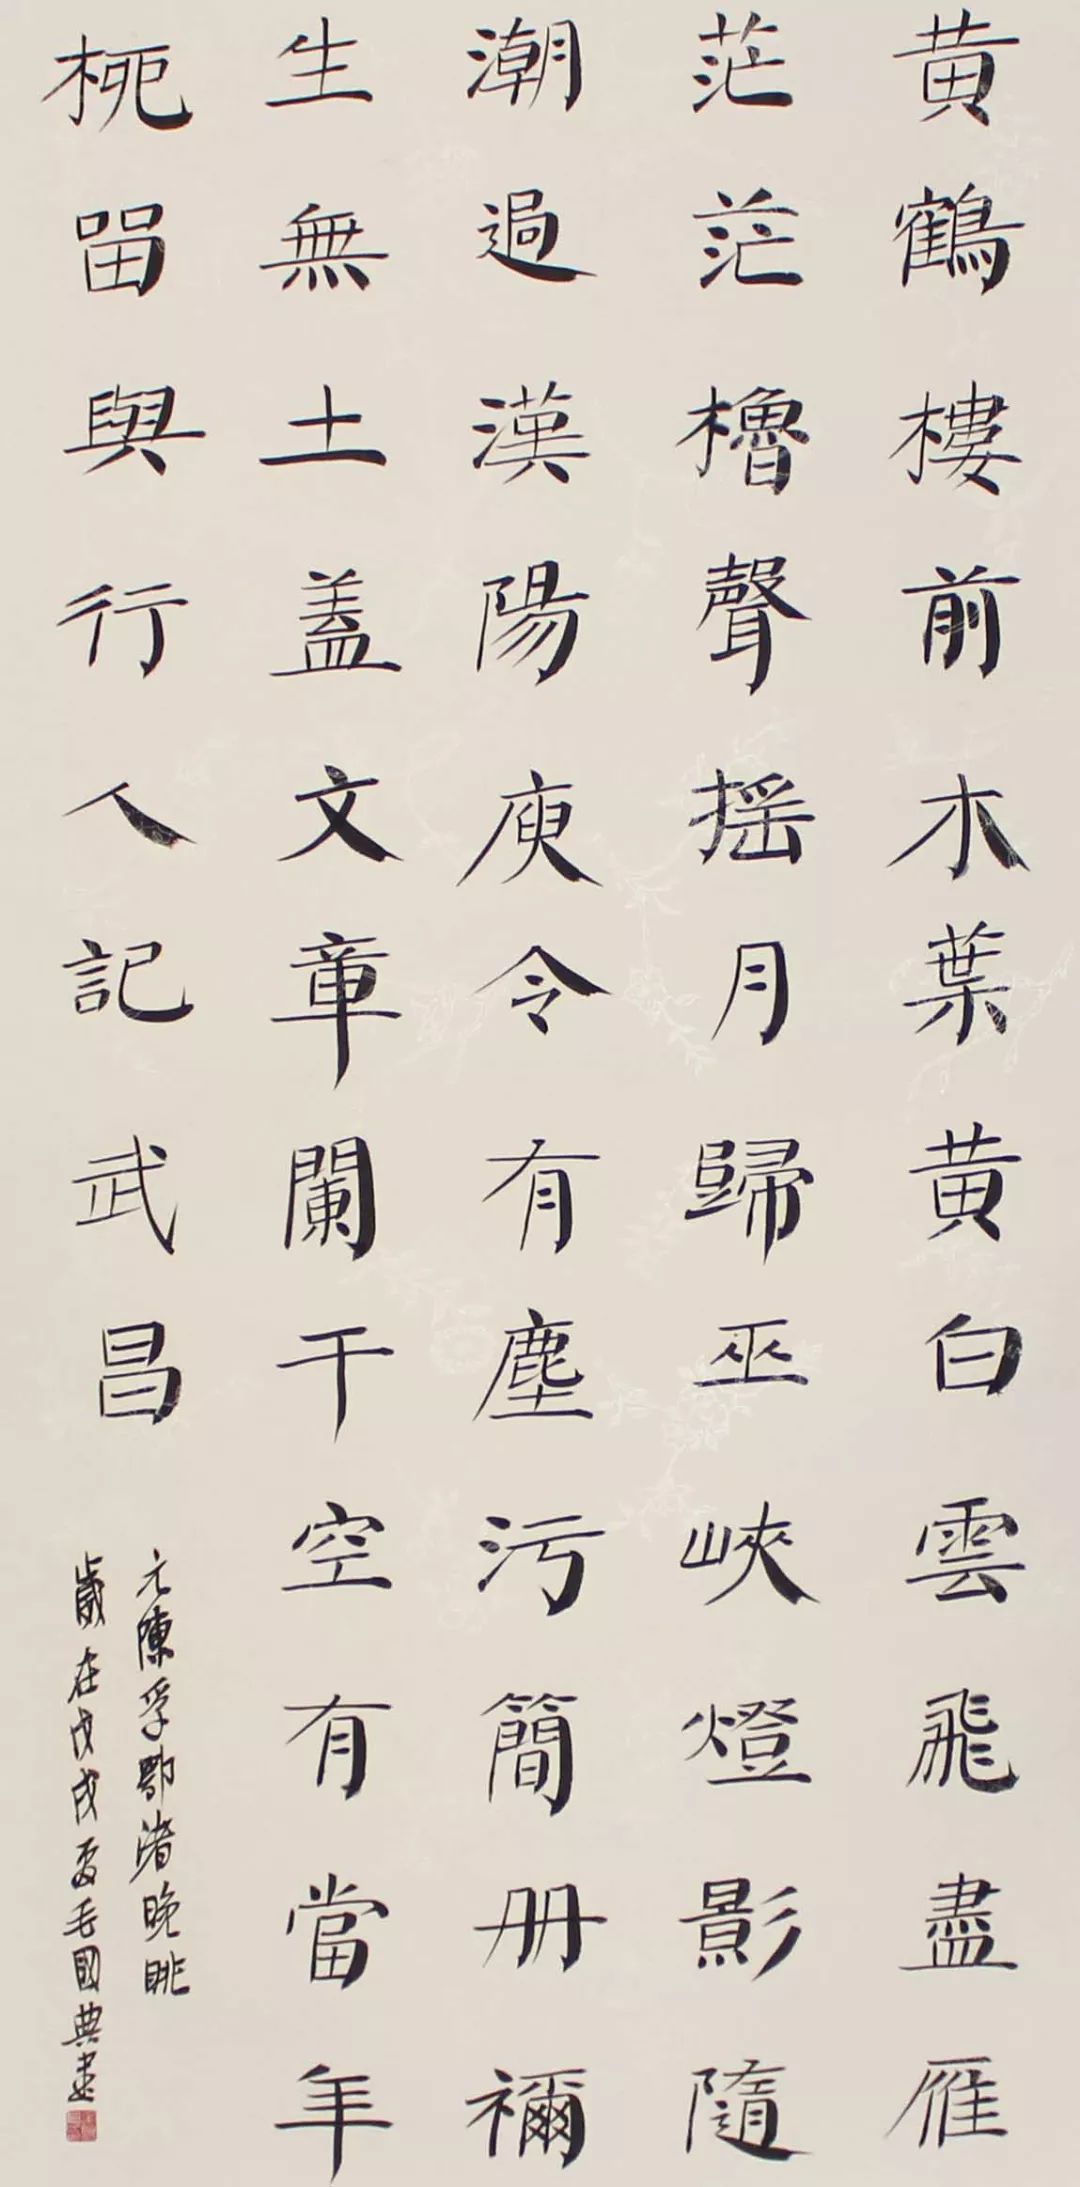 黄鶴樓前木葉黄白雲飛盡雁
茫茫櫓聲摇月歸巫峽燈影隨
潮過漢陽庾令有塵污簡册禰
生無土蓋文章闌干空有當年
栁留與行人記武昌
元陳孚鄂渚晚眺
歲在戊戌夏毛國典書